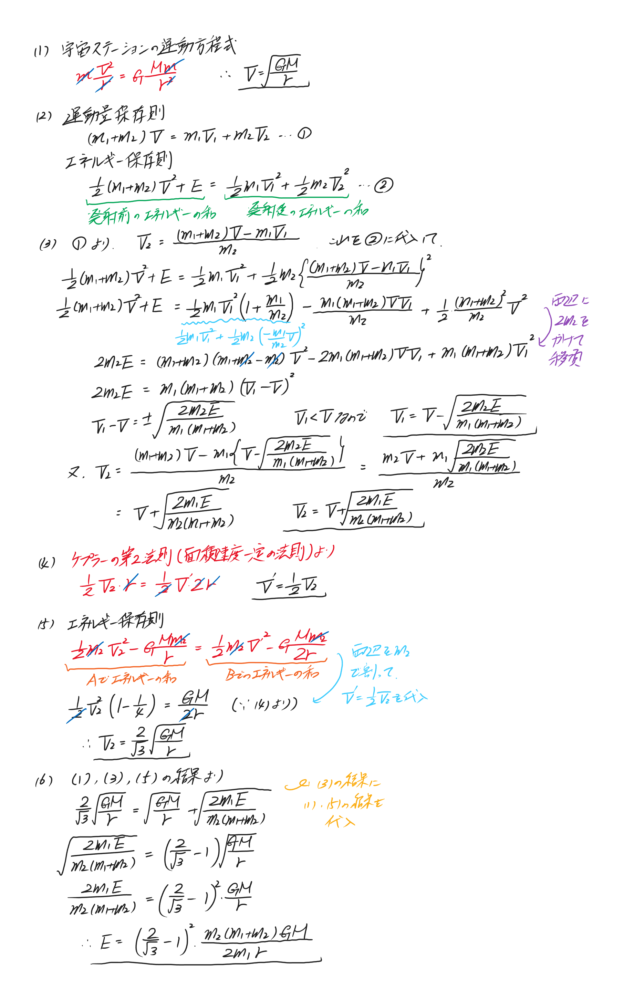 (1) 宇宙ステーションの運動方程式
m V²/r = G Mm/r² ∴ V = √(GM/r)
(2) 運動量保存則
(m₁+m₂)V = m₁V₁ + m₂V₂ … ①
エネルギー保存則
1/2 (m₁+m₂)V² + E = 1/2 m₁V₁² + 1/2 m₂V₂² … ②
発射前のエネルギーの和 発射後のエネルギーの和
(3) ①より. V₂ = ((m₁+m₂)V − m₁V₁)/m₂ これを②に代入して.
1/2 (m₁+m₂)V² + E = 1/2 m₁V₁² + 1/2 m₂ {((m₁+m₂)V − m₁V₁)/m₂}²
1/2 (m₁+m₂)V² + E = 1/2 m₁V₁² (1 + m₁/m₂) − m₁(m₁+m₂)VV₁/m₂ + 1/2 (m₁+m₂)²/m₂ V²
1/2 m₁V₁² + 1/2 m₂ (−m₁V₁/m₂)²
両辺に
2m₂を
かけて
移項
2m₂E = (m₁+m₂)(m₁+m₂−m₂)V² − 2m₁(m₁+m₂)VV₁ + m₁(m₁+m₂)V₁²
2m₂E = m₁(m₁+m₂)(V₁−V)²
V₁−V = ±√(2m₂E/(m₁(m₁+m₂))) V₁<Vなので V₁ = V − √(2m₂E/(m₁(m₁+m₂)))
又. V₂ = ((m₁+m₂)V − m₁{V − √(2m₂E/(m₁(m₁+m₂)))})/m₂ = (m₂V + m₁√(2m₂E/(m₁(m₁+m₂))))/m₂
= V + √(2m₁E/(m₂(m₁+m₂))) V₂ = V + √(2m₁E/(m₂(m₁+m₂)))
(4) ケプラーの第2法則(面積速度一定の法則)より
1/2 V₂ r = 1/2 V′ 2r V′ = 1/2 V₂
(5) エネルギー保存則
1/2 m₂V₂² − G Mm₂/r = 1/2 m₂V′² − G Mm₂/2r
Aでのエネルギーの和 Bでのエネルギーの和
両辺をm₂
で割って.
V′=1/2 V₂を代入
1/2 V₂² (1 − 1/4) = GM/2r (∵(4)より)
∴ V₂ = 2/√3 √(GM/r)
(6) (1),(3),(5)の結果より
(3)の結果に
(1).(5)の結果を
代入
2/√3 √(GM/r) = √(GM/r) + √(2m₁E/(m₂(m₁+m₂)))
√(2m₁E/(m₂(m₁+m₂))) = (2/√3 − 1)√(GM/r)
2m₁E/(m₂(m₁+m₂)) = (2/√3 − 1)² · GM/r
∴ E = (2/√3 − 1)² · m₂(m₁+m₂)GM/(2m₁r)